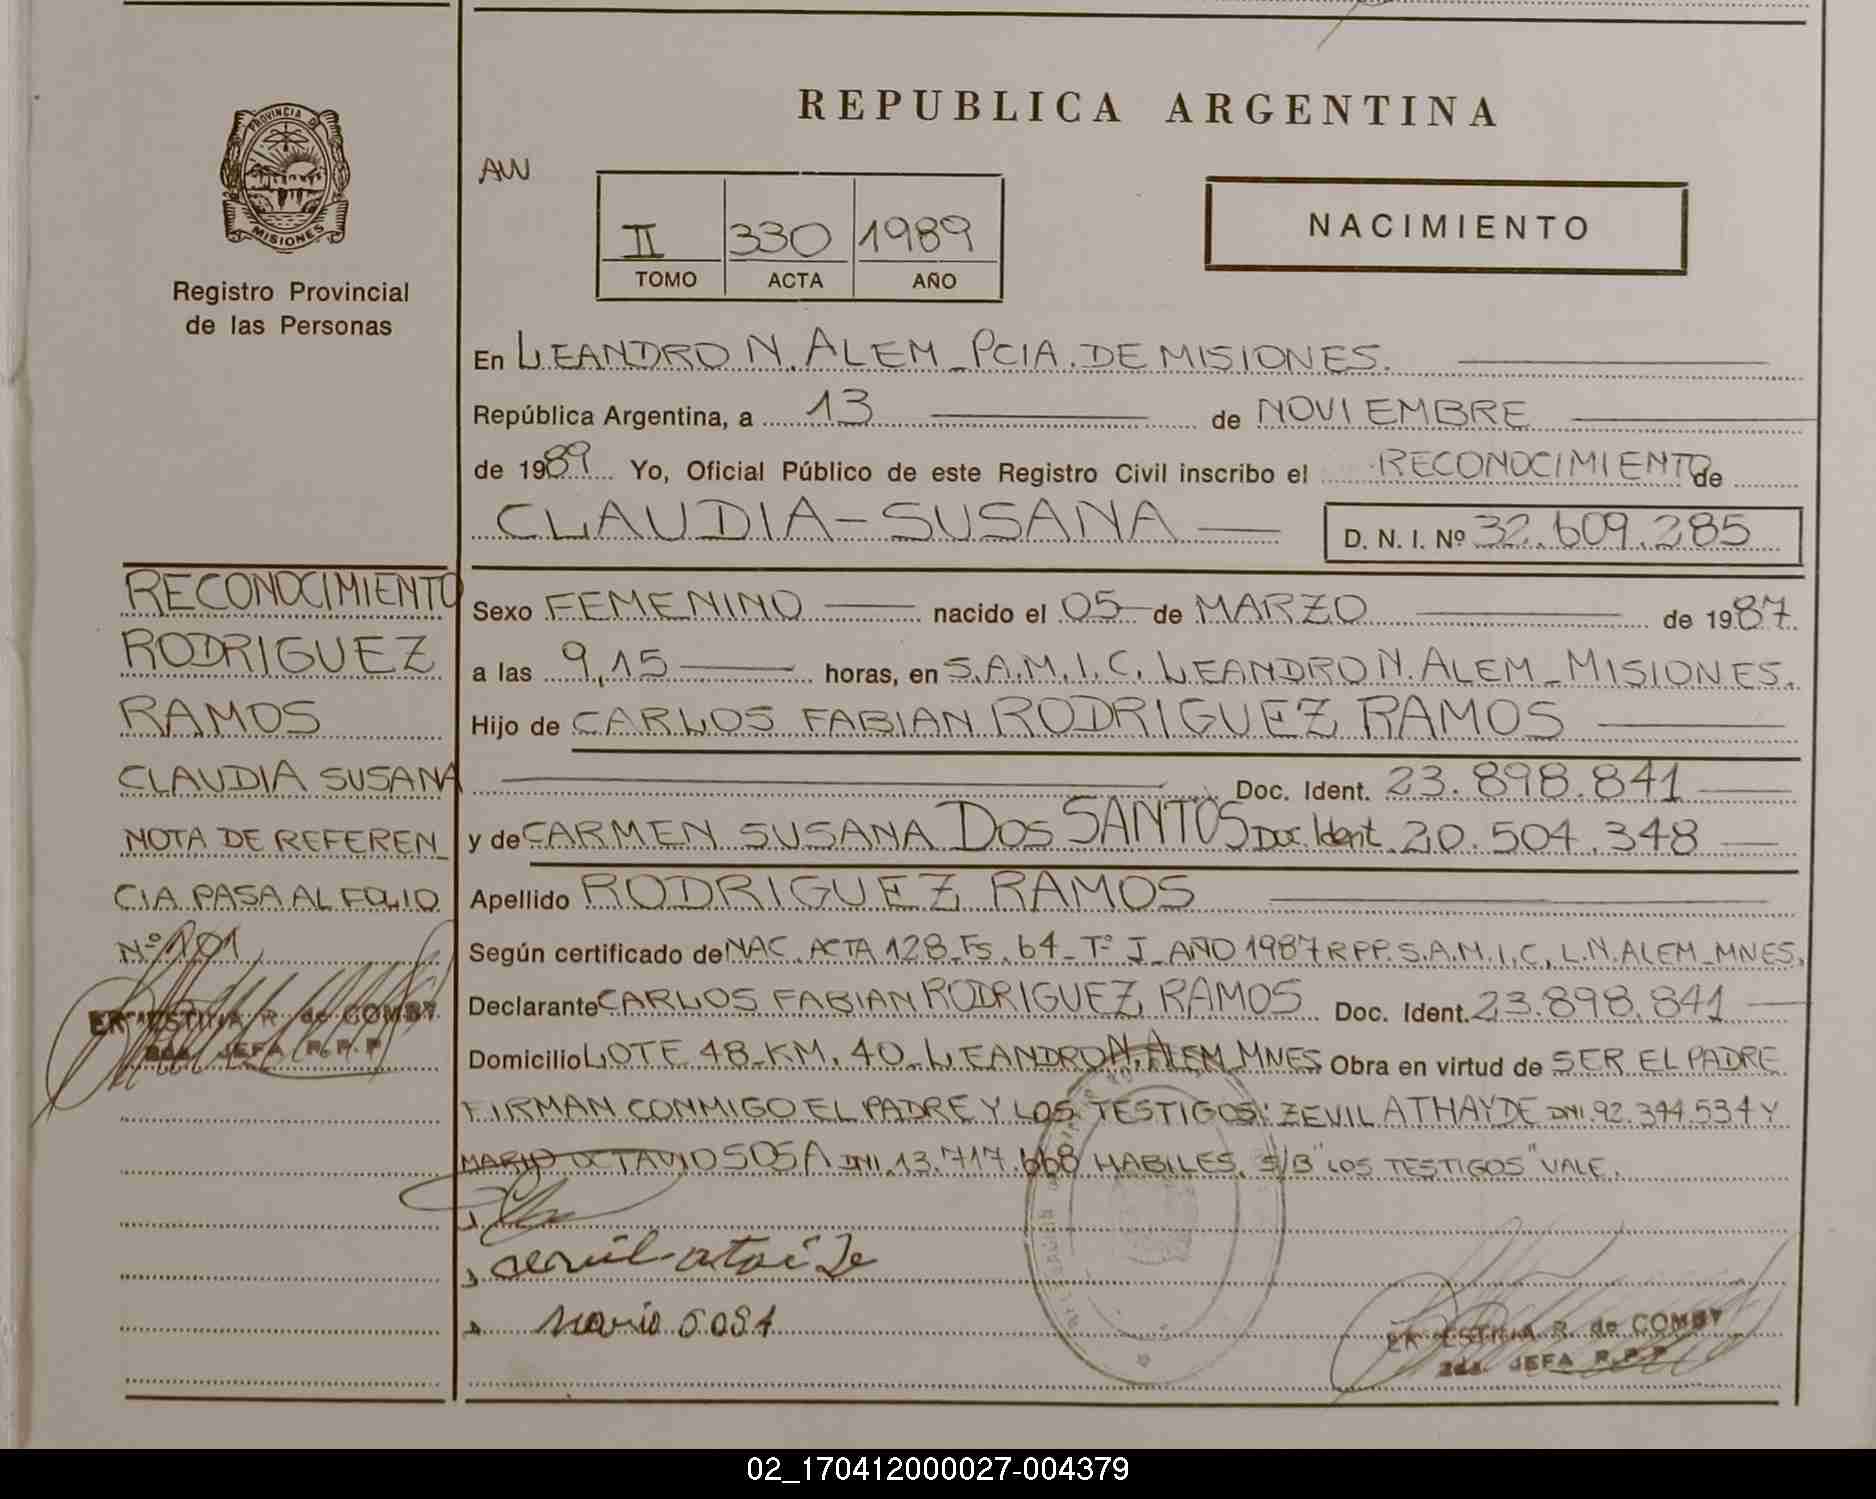 REPUBLICA ARGENTINA
PROVINCIA DE
MISIONES
Registro Provincial
de las Personas
AW
II 330 1989
TOMO ACTA AÑO
NACIMIENTO
En LEANDRO N. ALEM - PCIA. DE MISIONES.
República Argentina, a 13 de NOVIEMBRE
de 1989 Yo, Oficial Público de este Registro Civil inscribo el RECONOCIMIENTO de
CLAUDIA-SUSANA D. N. I. Nº 32.609.285
Sexo FEMENINO nacido el 05 de MARZO de 1987.
a las 9,15 horas, en S.A.M.I.C. LEANDRO N. ALEM - MISIONES.
Hijo de CARLOS FABIAN RODRIGUEZ RAMOS
Doc. Ident. 23.898.841
y de CARMEN SUSANA DOS SANTOS Doc. Ident. 20.504.348
Apellido RODRIGUEZ RAMOS
Según certificado de NAC. ACTA 128-Fs. 64-Tº I-AÑO 1987 R.P.P. S.A.M.I.C. L.N. ALEM-MNES.
Declarante CARLOS FABIAN RODRIGUEZ RAMOS Doc. Ident. 23.898.841
Domicilio LOTE 48-KM. 40-LEANDRO N. ALEM MNES Obra en virtud de SER EL PADRE
FIRMAN CONMIGO EL PADRE Y LOS TESTIGOS: ZEVIL ATHAYDE DNI. 92.344.534 Y
MARIO OCTAVIO SOSA DNI. 13.717.668 HABILES. S/B "LOS TESTIGOS" VALE.
mario sosa
R. de COMBY
2da. JEFA R.P.P.
RECONOCIMIENTO
RODRIGUEZ
RAMOS
CLAUDIA SUSANA
NOTA DE REFEREN-
CIA PASA AL FOLIO
Nº 101
R. de COMBY
2da. JEFA R.P.P
02_170412000027-004379